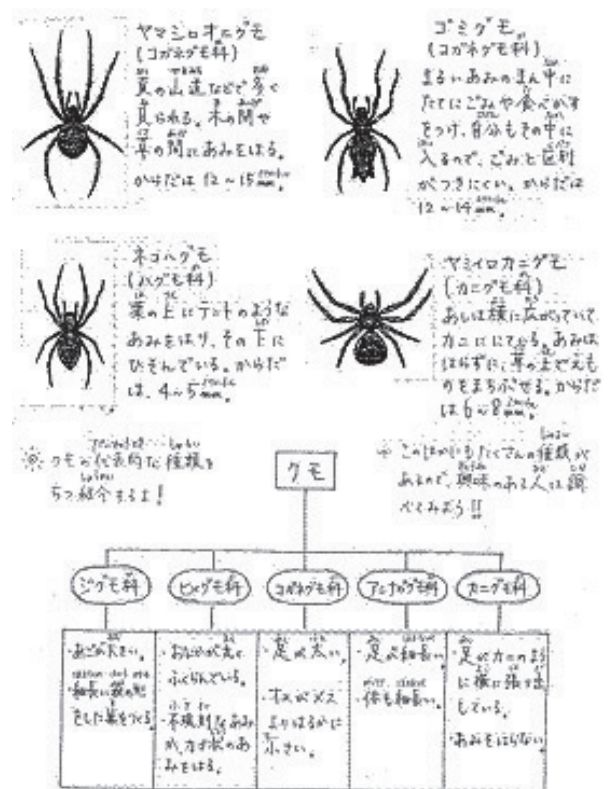 ヤマシロオニグモ
(コガネグモ科)
夏の山道などで多く
見られる。木の間や
草の間にあみをはる。
からだは12~15mm。
ゴミグモ
(コガネグモ科)
まるいあみのまん中に
たてにごみや食べかす
をつけ、自分もその中に
入るので、ごみと区別
がつきにくい。からだは
12~14mm。
ネコハグモ
(ハグモ科)
葉の上にテントのような
あみをはり、その下に
ひそんでいる。からだ
は、4~5mm。
ヤミイロカニグモ
(カニグモ科)
あしは横に広がっていて
カニににている。あみは
はらずに、草の上でえも
のをまちぶせる。からだ
は6~8mm。
クモの代表的な種類を
紹介するよ!
このほかにもたくさんの種類が
あるので、興味のある人は調
べてみよう!!
クモ
ジグモ科
ヒメグモ科
コガネグモ科
カニグモ科
・あごが大きい。
・細長い袋の形
をした巣をつくる。
・おなかが丸く
ふくらんでいる。
・不規則なあみ
か、カゴ状のあ
みをはる。
・足が太い。
・オスがメス
よりはるかに
小さい。
・足が細長い。
・体も細長い。
・足がカニのよう
に横に張り出
している。
・あみをはらない。